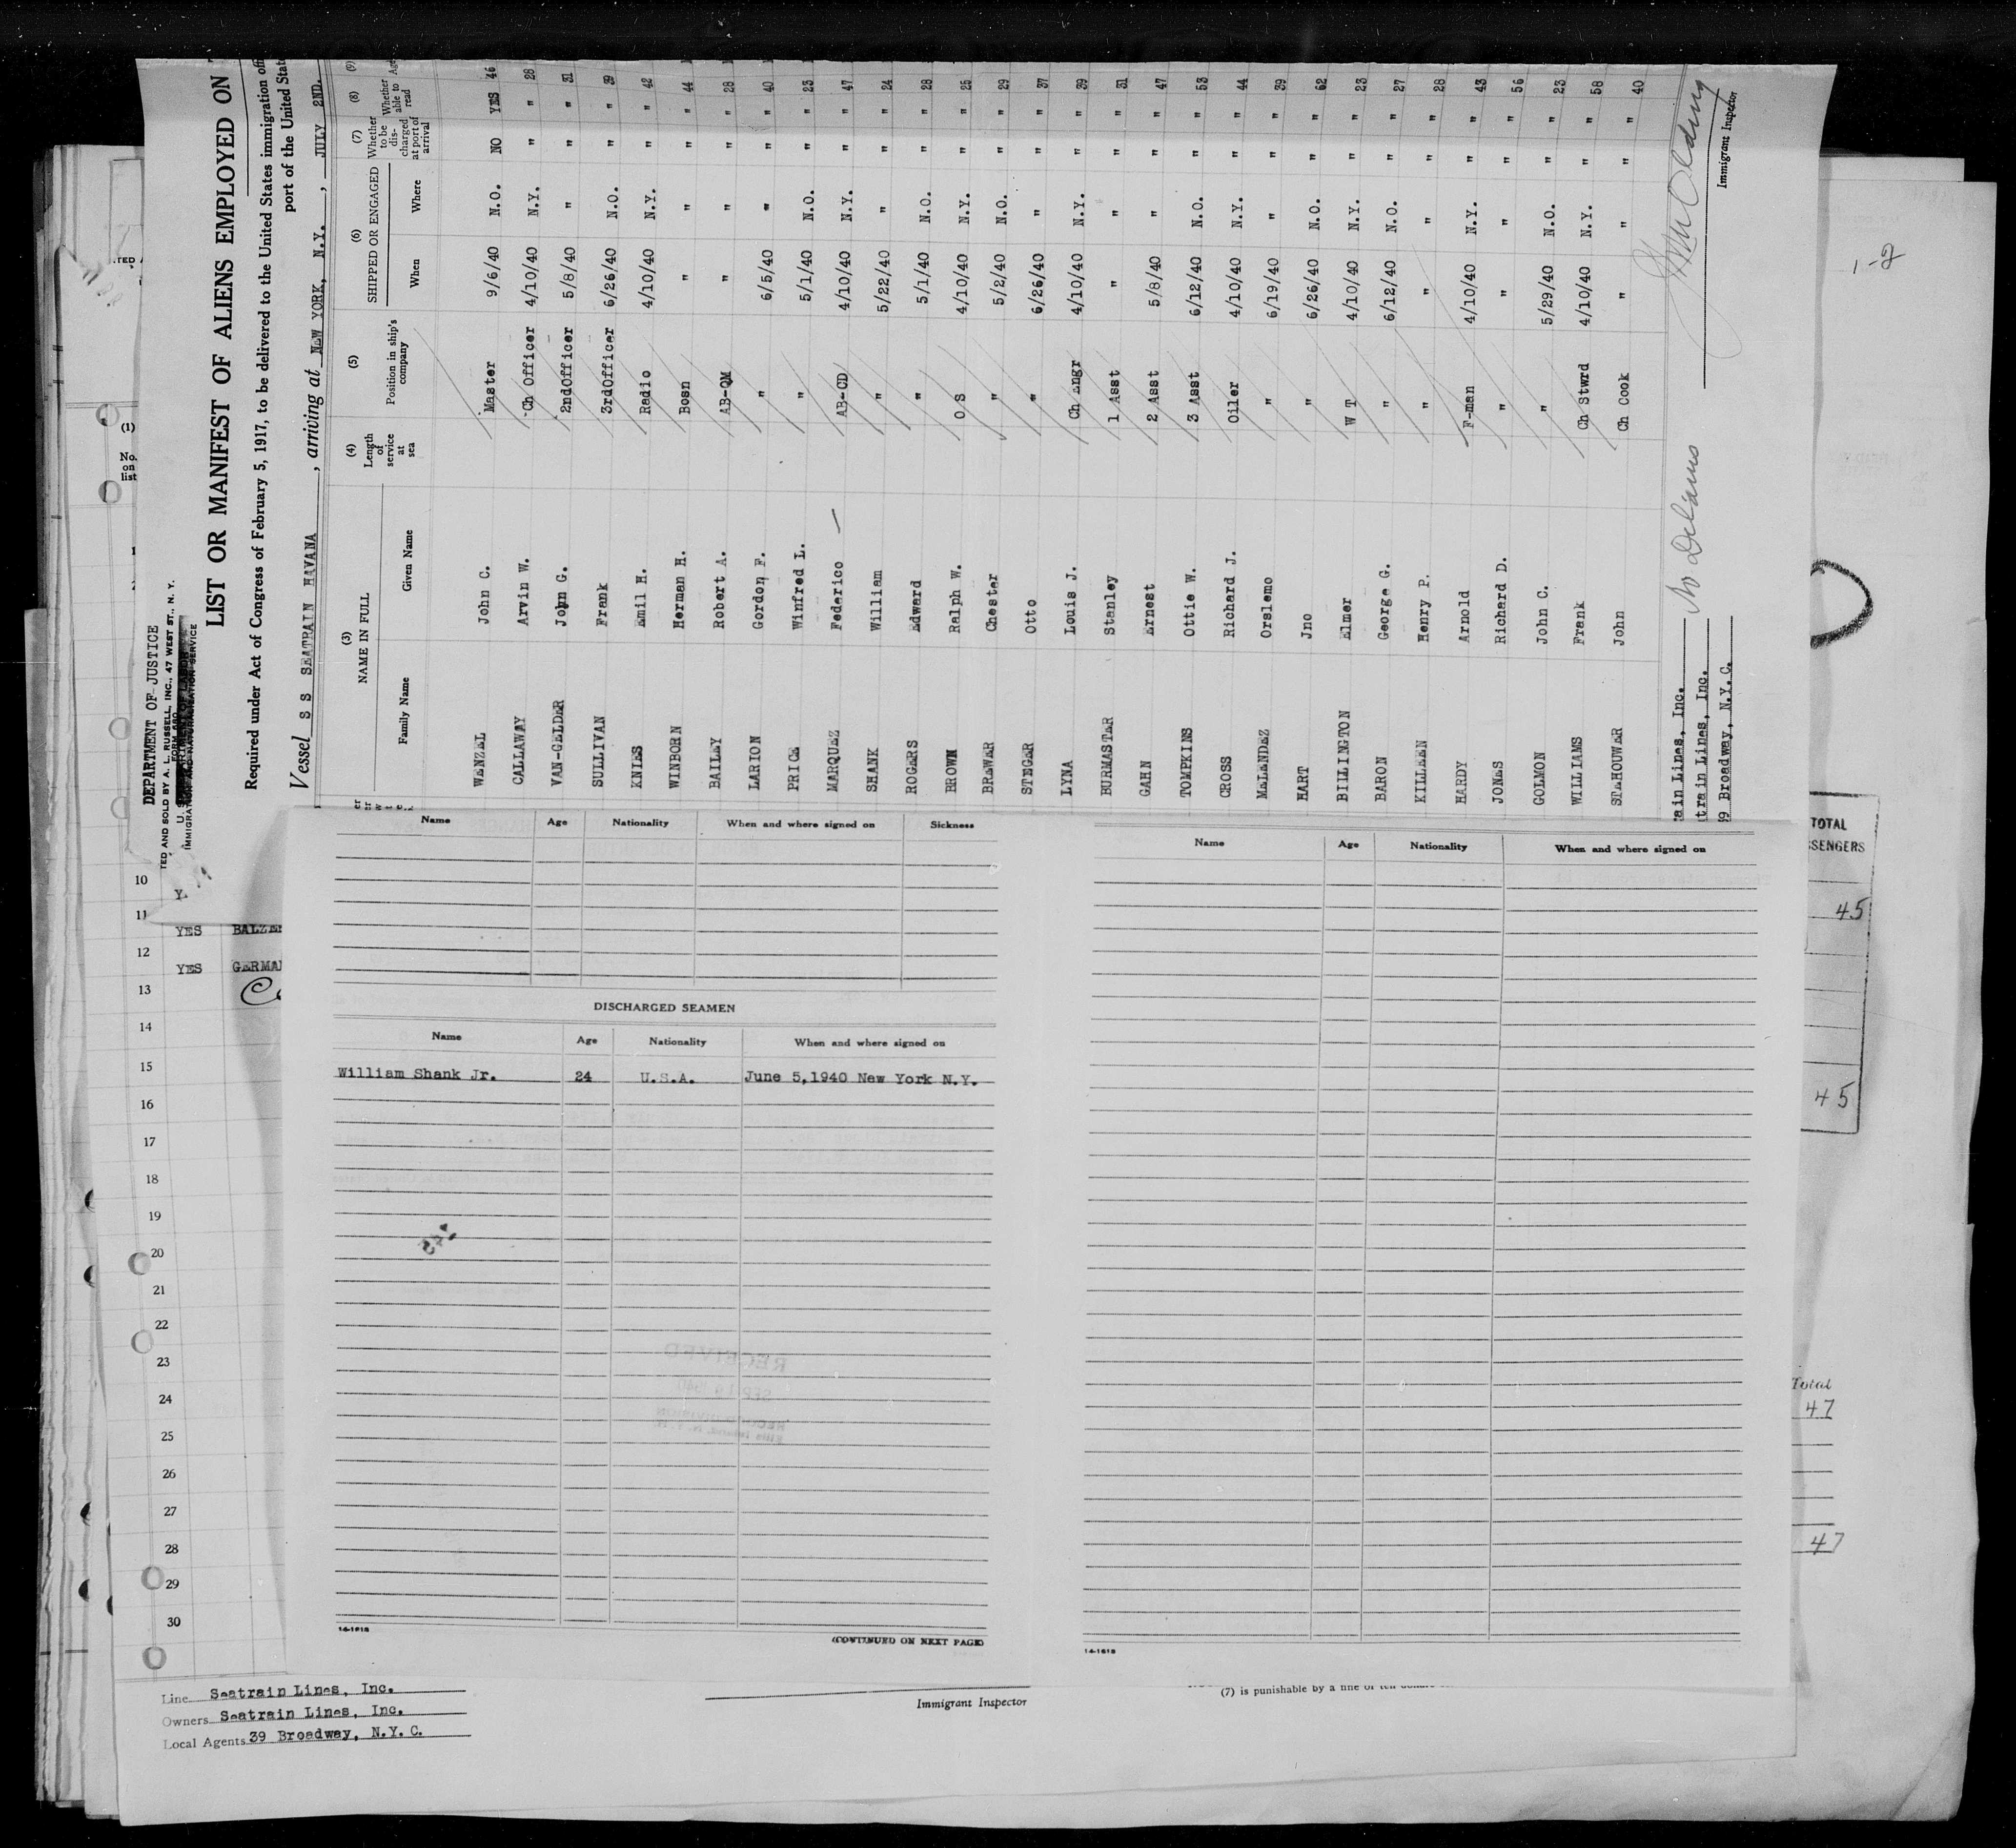 DEPARTMENT OF JUSTICE
TED AND SOLD BY A. L. RUSSELL, INC., 47 WEST ST., N. Y.
FORM 680
IMMIGRATION AND NATURALIZATION SERVICE
LIST OR MANIFEST OF ALIENS EMPLOYED ON
Required under Act of Congress of February 5, 1917, to be delivered to the United States immigration
port of the United
Vessel S S SEATRAIN HAVANA , arriving at NEW YORK, N.Y. , JULY 2ND.
(3) NAME IN FULL (4) Length of service at sea (5) Position in ship's company (6) SHIPPED OR ENGAGED (7) Whether to be discharged at port of arrival (8) Whether able to read (9) Age
Family Name Given Name When Where
WENZEL John C. Master 9/6/40 N.O. NO YES 46
CALLAWAY Arvin W. Ch Officer 4/10/40 N.Y. " " 28
VAN-GELDER John G. 2ndOfficer 5/8/40 " " " 31
SULLIVAN Frank 3rdOfficer 6/26/40 N.O. " " 39
KNIES Emil H. Radio 4/10/40 N.Y. " " 42
WINBORN Herman H. Bosn " " " " 44
BAILEY Robert A. AB-QM " " " " 28
LARION Gordon F. " 6/5/40 " " " 40
PRICE Winfred L. " 5/1/40 N.O. " " 23
MARQUEZ Federico — AB-CD 4/10/40 N.Y. " " 47
SHANK William " 5/22/40 " " " 24
ROGERS Edward " 5/1/40 N.O. " " 28
BROWN Ralph W. O S 4/10/40 N.Y. " " 25
BREWER Chester " 5/2/40 N.O. " " 29
STENGER Otto " 6/26/40 " " " 37
LYNA Louis J. Ch Engr 4/10/40 N.Y. " " 39
BURMASTER Stanley 1 Asst " " " " 31
GAHN Ernest 2 Asst 5/8/40 " " " 47
TOMPKINS Ottie W. 3 Asst 6/12/40 N.O. " " 53
CROSS Richard J. Oiler 4/10/40 N.Y. " " 44
MELENDEZ Orslemo " 6/19/40 " " " 39
HART Jno " 6/26/40 N.O. " " 62
BILLINGTON Elmer W T 4/10/40 N.Y. " " 23
BARON George G. " 6/12/40 N.O. " " 27
KILLEEN Henry P. " " " " " 28
HARDY Arnold F-man 4/10/40 N.Y. " " 43
JONES Richard D. " " " " " 56
GOLMON John C. " 5/29/40 N.O. " " 23
WILLIAMS Frank Ch Stwrd 4/10/40 N.Y. " " 58
STAHOUWER John Ch Cook " " " " 40
ain Lines, Inc.
train Lines, Inc.
9 Broadway, N.Y.C.
Immigrant Inspector
(1)
No. on list
10
11 YES
12 YES
13
14
15
16
17
18
19
20
21
22
23
24
25
26
27
28
29
30
Name Age Nationality When and where signed on Sickness
DISCHARGED SEAMEN
Name Age Nationality When and where signed on
William Shank Jr. 24 U.S.A. June 5,1940 New York N.Y.
14-1618
(CONTINUED ON NEXT PAGE)
Name Age Nationality When and where signed on
14-1618
1-2
TOTAL
SSENGERS
45
45
Total
47
47
Line Seatrain Lines, Inc.
Owners Seatrain Lines, Inc.
Local Agents 39 Broadway, N.Y.C.
Immigrant Inspector
(7) is punishable by a fine of ten